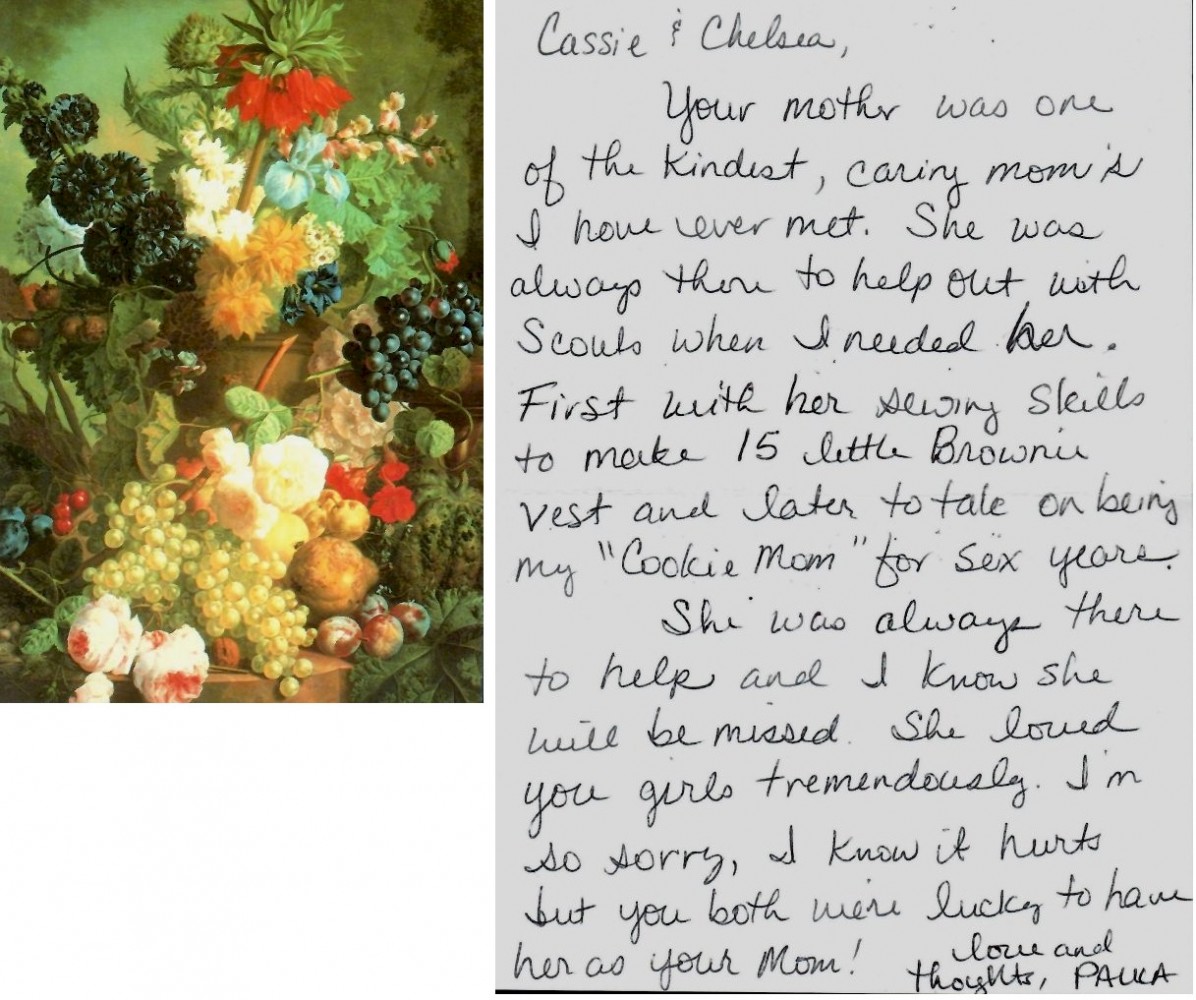 Cassie & Chelsea,
Your mother was one
of the kindest, caring mom's
I have ever met. She was
always there to help out with
Scouts when I needed her.
First with her sewing skills
to make 15 little Brownie
vest and later to take on being
my "Cookie Mom" for six years.
She was always there
to help and I know she
will be missed. She loved
you girls tremendously. I'm
so sorry, I know it hurts
but you both were lucky to have
her as your Mom!
love and
thoughts, PAULA